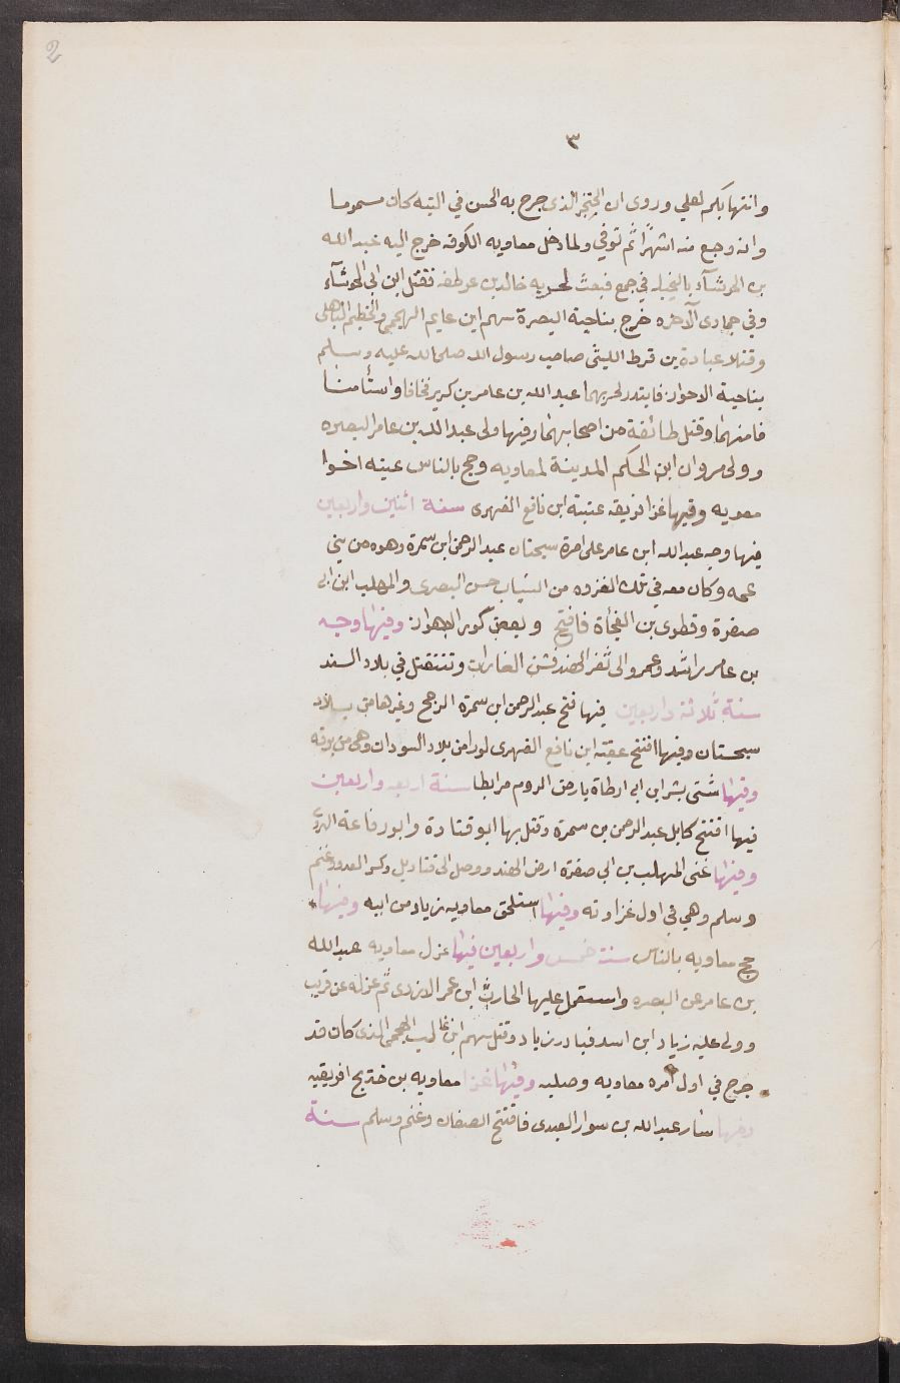 2
٣
وانتها بكم لعلي وروى ان الخنجر الذى جرح به الحسن في اليته كان مسموما
وانه وجع منه اشهرًا ثم توفي ولما دخل معاويه الكوفه خرج اليه عبد الله
بن الحرشآء بالنخيله في جمع فبعث لحربه خالد بن عرطفه فقتل ابن ابى الحوشآء
وفي جمادى الآخره خرج بناحية البصرة سهم ابن غايم الهجمي والخطيم الباهلى
وقتلا عبادة بن قرط الليثى صاحب رسول الله صلى الله عليه وسلم
بناحية الاحواز فابتدر لحربهما عبد الله بن عامر بن كريز فخافا واستأمنا
فامنهما وقتل طائفة من اصحابهما وفيها ولى عبد الله بن عامر البصره
وولى مروان ابن الحكم المدينة لمعاويه وحج بالناس عيته اخوا
معويه وفيها غزا فريقه عتبة ابن نافع الفهرى سنة اثنين واربعين
فيها وجه عبد الله ابن عامر على امرة سجتان عبد الرحمن ابن سمرة وهوه من بني
عمه وكان معه في تلك الغزوه من الشباب حسن البصرى والمهلب ابن ابى
صفرة وقطرى بن الفجأة فافتح وبعض كور الاهواز وفيها وجه
بن عامر راشد وعمرو الى ثغر الهند فشن الغارات وتنتقتل في بلاد السند
سنة ثلاثة واربعين فيها فتح عبد الرحمن ابن سمرة الرجح وغيرها من بلاد
سجستان وفيها افتتح عقبة ابن نافع الفهرى لورا من بلاد السودان وهى من برقه
وفيها شتى بشر ابن ابى ارطاة يارض الروم مرابطا سنة اربعه واربعين
فيها افتتح كابل عبد الرحمن بن سمرة وقتل بها ابو قتادة وابو رفاعة
وفيها غنى المهلب بن ابى صفرة ارض الهند ووصل الى قنابيل وكسر العدو وغنم
وسلم وهي في اول غزاوته وفيها استلحق معاويه زياد من ابيه وفيها
حج معاويه بالناس سنت خمس واربعين فيها عزل معاويه عبد الله
بن عامر عن البصره واستعمل عليها الحارث ابن عمر الازدى ثم عزله عن قريب
وولى عليه زياد ابن اسد فبادر زياد وقتل سهم ابن غالب الهجمى الذى كان قد
خرج في اول امره معاويه وصلبه وفيها غزا معاويه بن خديج افريقيه
وفيها سار عبد الله بن سوار العبدى فافتتح القيقان وغنم وسلم سنة